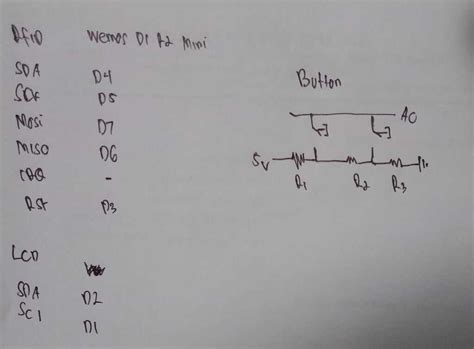 RfiD Wemos D1 R2 Mini
SDA D4
SCK D5
Mosi D7
MISO D6
IRQ -
RST D3
LCD
SDA D2
SCl D1
Button
A0
5v
R1 R2 R3